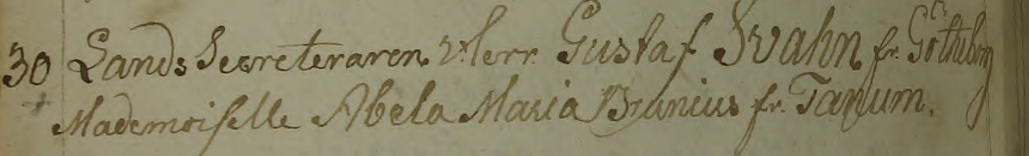 30 Lands Secreteraren Herr Gustaf Svahn fr. Götheborg
Mademoiselle Abela Maria Brunius fr. Tanum.